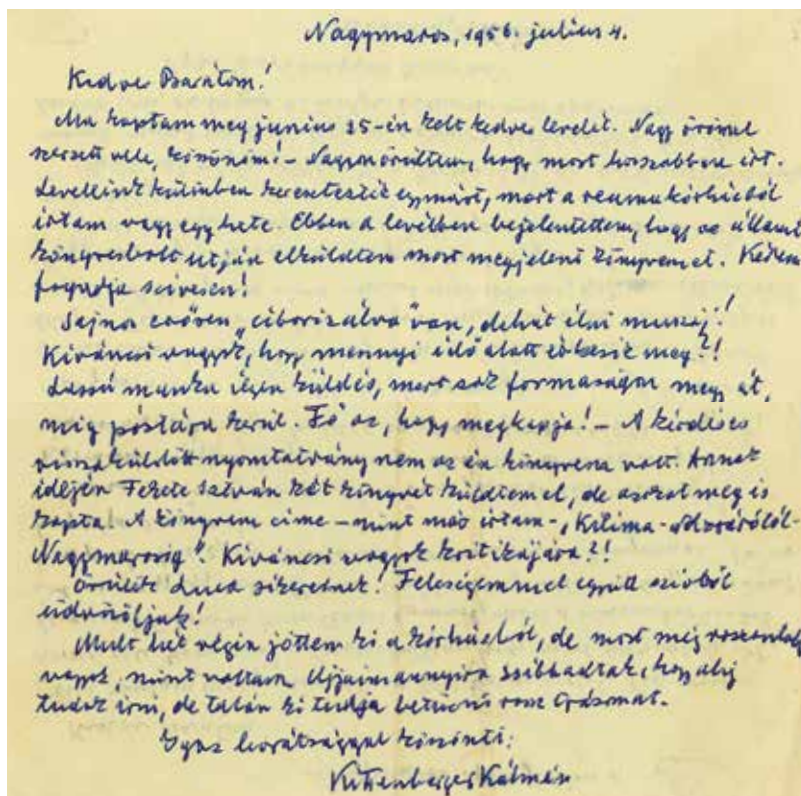 Nagymaros, 1956. julius 4.
Kedves Barátom!
Ma kaptam meg junius 25-én kelt kedves levelét. Nagy örömet
szerzett vele, köszönöm! - Nagyon örültem, hogy most hosszabban írt.
Leveleink különben keresztezték egymást, mert a reumakórházból
írtam vagy egy hete. Ebben a levélben bejelentettem, hogy az állami
könyvesbolt utján elküldtem most megjelent könyvemet. Kérem
fogadja szívesen!
Sajnos erősen "ciborizálva" van, dehát élni muszáj!
Kiváncsi vagyok, hogy mennyi idő alatt érkezik meg?!
Lassú munka ilyen küldés, mert sok formaságon megy át,
mig póstára kerül. Fő az, hogy megkapja! - A kérdéses
visszaküldött nyomtatvány nem az én könyvem volt. Annak
idején Fekete István két könyvét küldtem el, de azokat meg is
kapta! A könyvem címe - mint már írtam - "Kilima-Ndzsárótól-
Nagymarosig". Kiváncsi vagyok kritikájára?!
Örülök sikerének! Feleségemmel együtt szívből
üdvözöljük!
Mult hét végén jöttem ki a kórházból, de most még rosszabbul
vagyok, mint voltam. Ujjaim annyira zsibbadtak, hogy alig
tudok írni, de talán ki tudja betűzni rossz írásomat.
Igaz barátsággal köszönti:
Kittenberger Kálmán